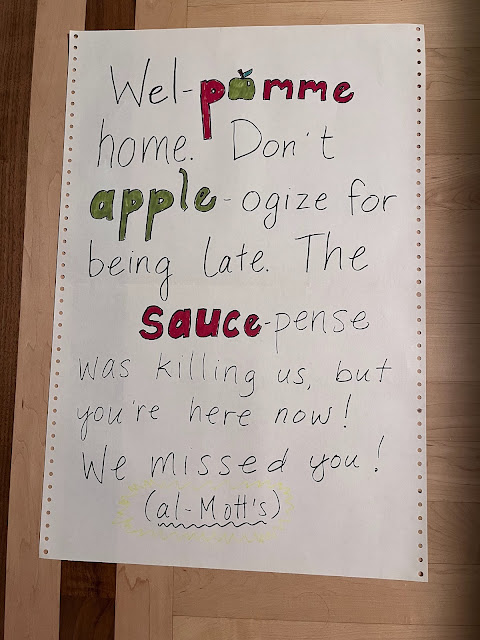 Wel-pomme
home. Don't
apple-ogize for
being late. The
sauce-pense
was killing us, but
you're here now!
We missed you!
(al-Mott's)